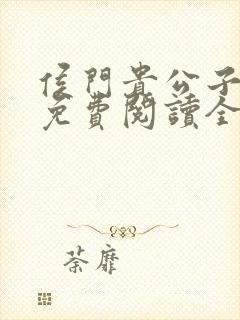 侯門貴公子
免費閱讀全
荼靡